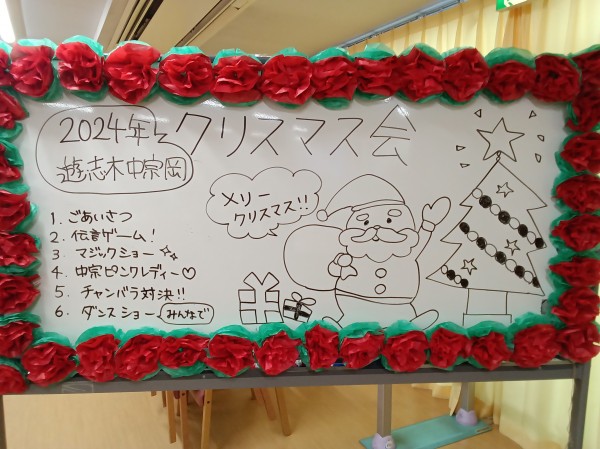 2024年
遊志木中宗岡
クリスマス会
メリー
クリスマス!!
1. ごあいさつ
2. 伝言ゲーム!
3. マジックショー
4. 中宗ピンクレディー♡
5. チャンバラ対決!!
6. ダンスショー みんなで